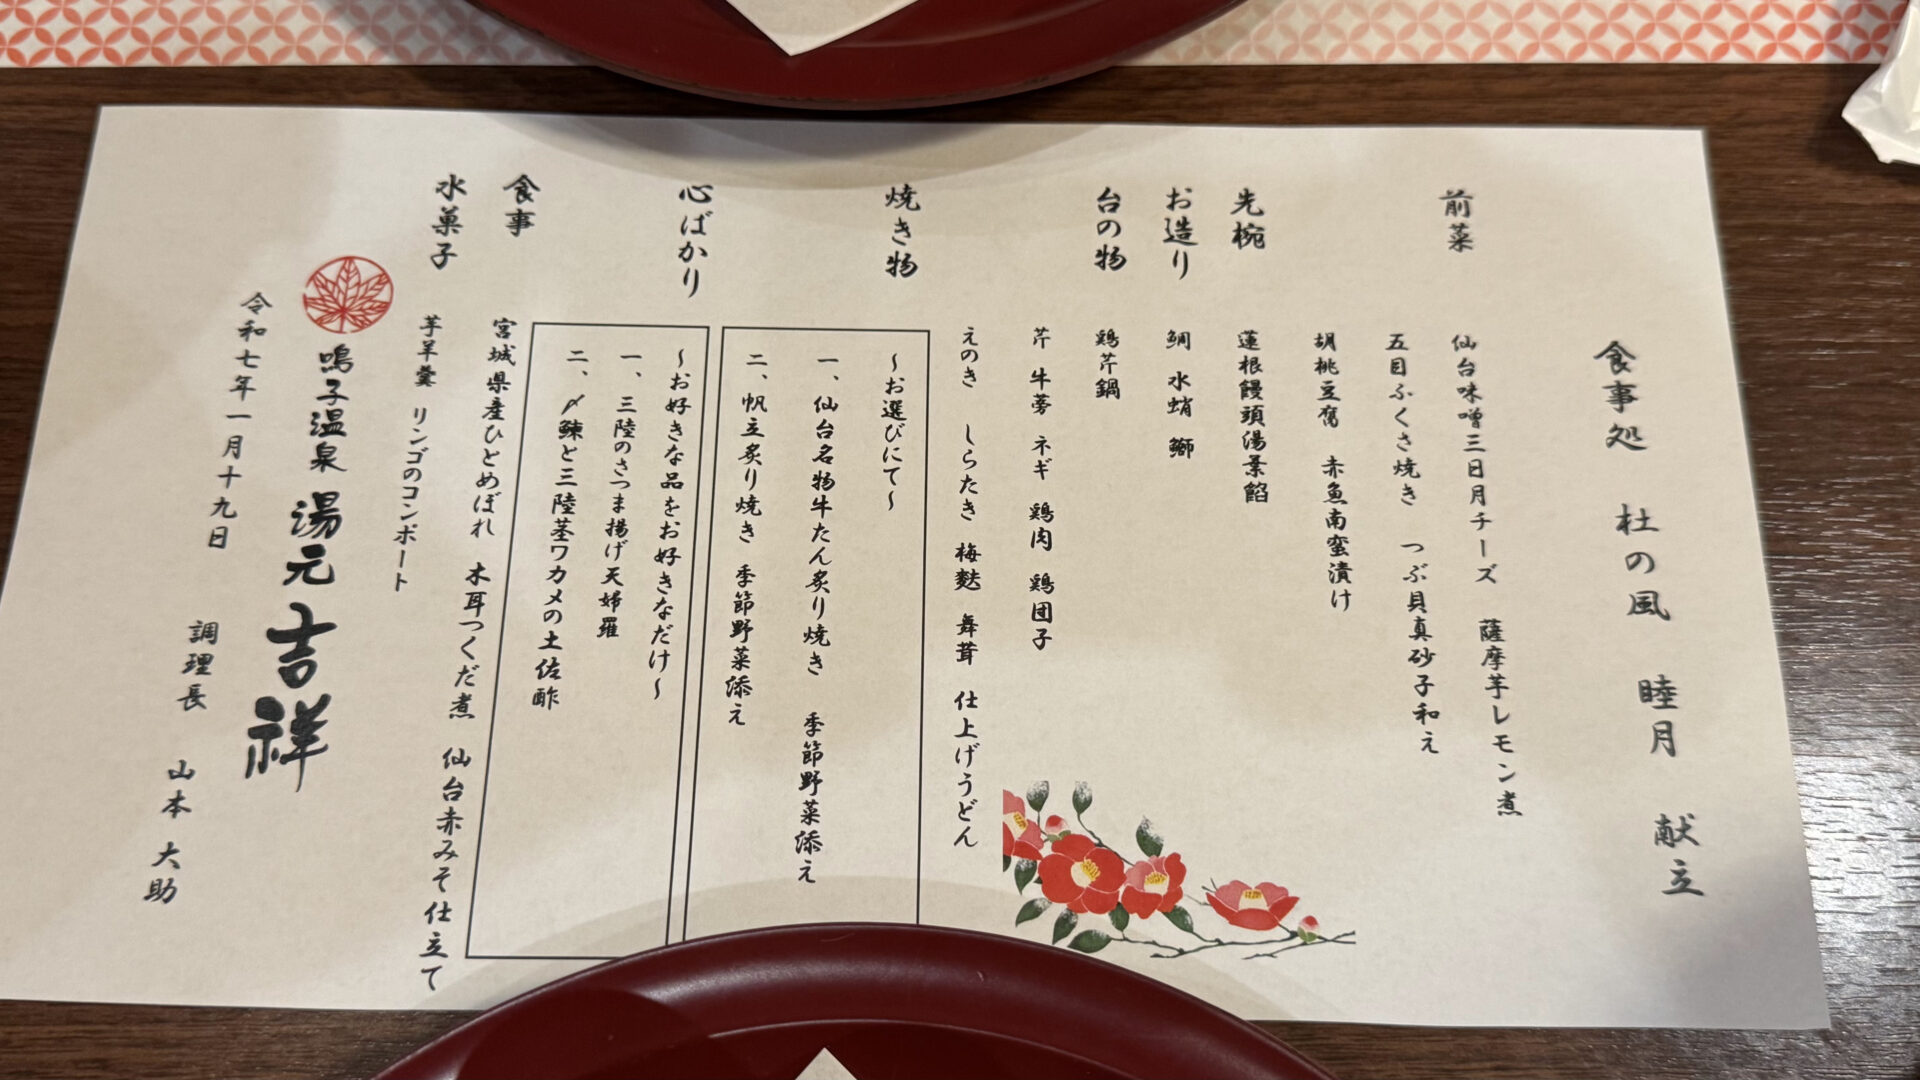 食事処 杜の風 睦月 献立
前菜 仙台味噌三日月チーズ 薩摩芋レモン煮
五目ふくさ焼き つぶ貝真砂子和え
胡桃豆腐 赤魚南蛮漬け
先椀 蓮根饅頭湯葉餡
お造り 鯛 水蛸 鰤
台の物 鶏芹鍋
芹 牛蒡 ネギ 鶏肉 鶏団子
えのき しらたき 梅麩 舞茸 仕上げうどん
焼き物 〜お選びにて〜
一、仙台名物牛たん炙り焼き 季節野菜添え
二、帆立炙り焼き 季節野菜添え
心ばかり 〜お好きな品をお好きなだけ〜
一、三陸のさつま揚げ天婦羅
二、〆鰊と三陸茎ワカメの土佐酢
食事 宮城県産ひとめぼれ 木耳つくだ煮 仙台赤みそ仕立て
水菓子 芋羊羹 リンゴのコンポート
鳴子温泉 湯元 吉祥
令和七年一月十九日 調理長 山本 大助